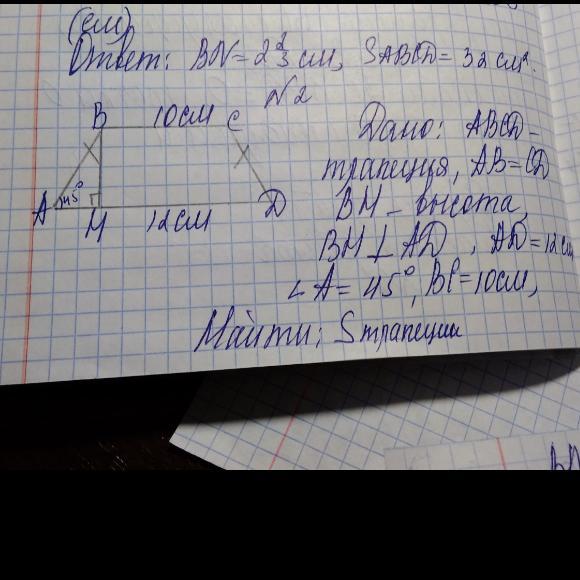 (см)
Ответ: BN = 2 2/3 см, SABCD = 32 см².
N2
B 10см C
A 45° M 12см D
Дано: ABCD -
трапеция, AB = CD
BM - высота
BM ⊥ AD, AD = 12см
∠A = 45°, BC = 10см,
Найти: Sтрапеции